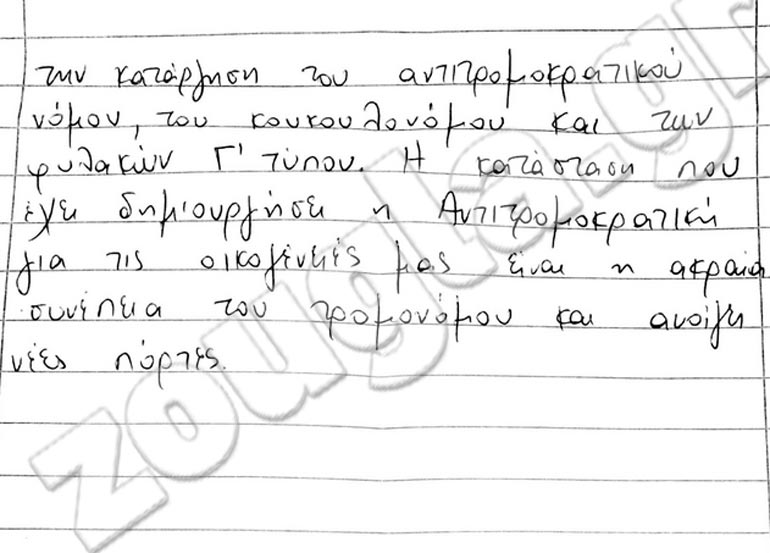 την κατάργηση του αντιτρομοκρατικού
νόμου, του κουκουλονόμου και των
φυλακών Γ' τύπου. Η κατάσταση που
έχει δημιουργήσει η Αντιτρομοκρατική
για τις οικογένειές μας είναι η ακραία
συνέπεια του τρομονόμου και ανοίγει
νέες πόρτες.
zougla.gr